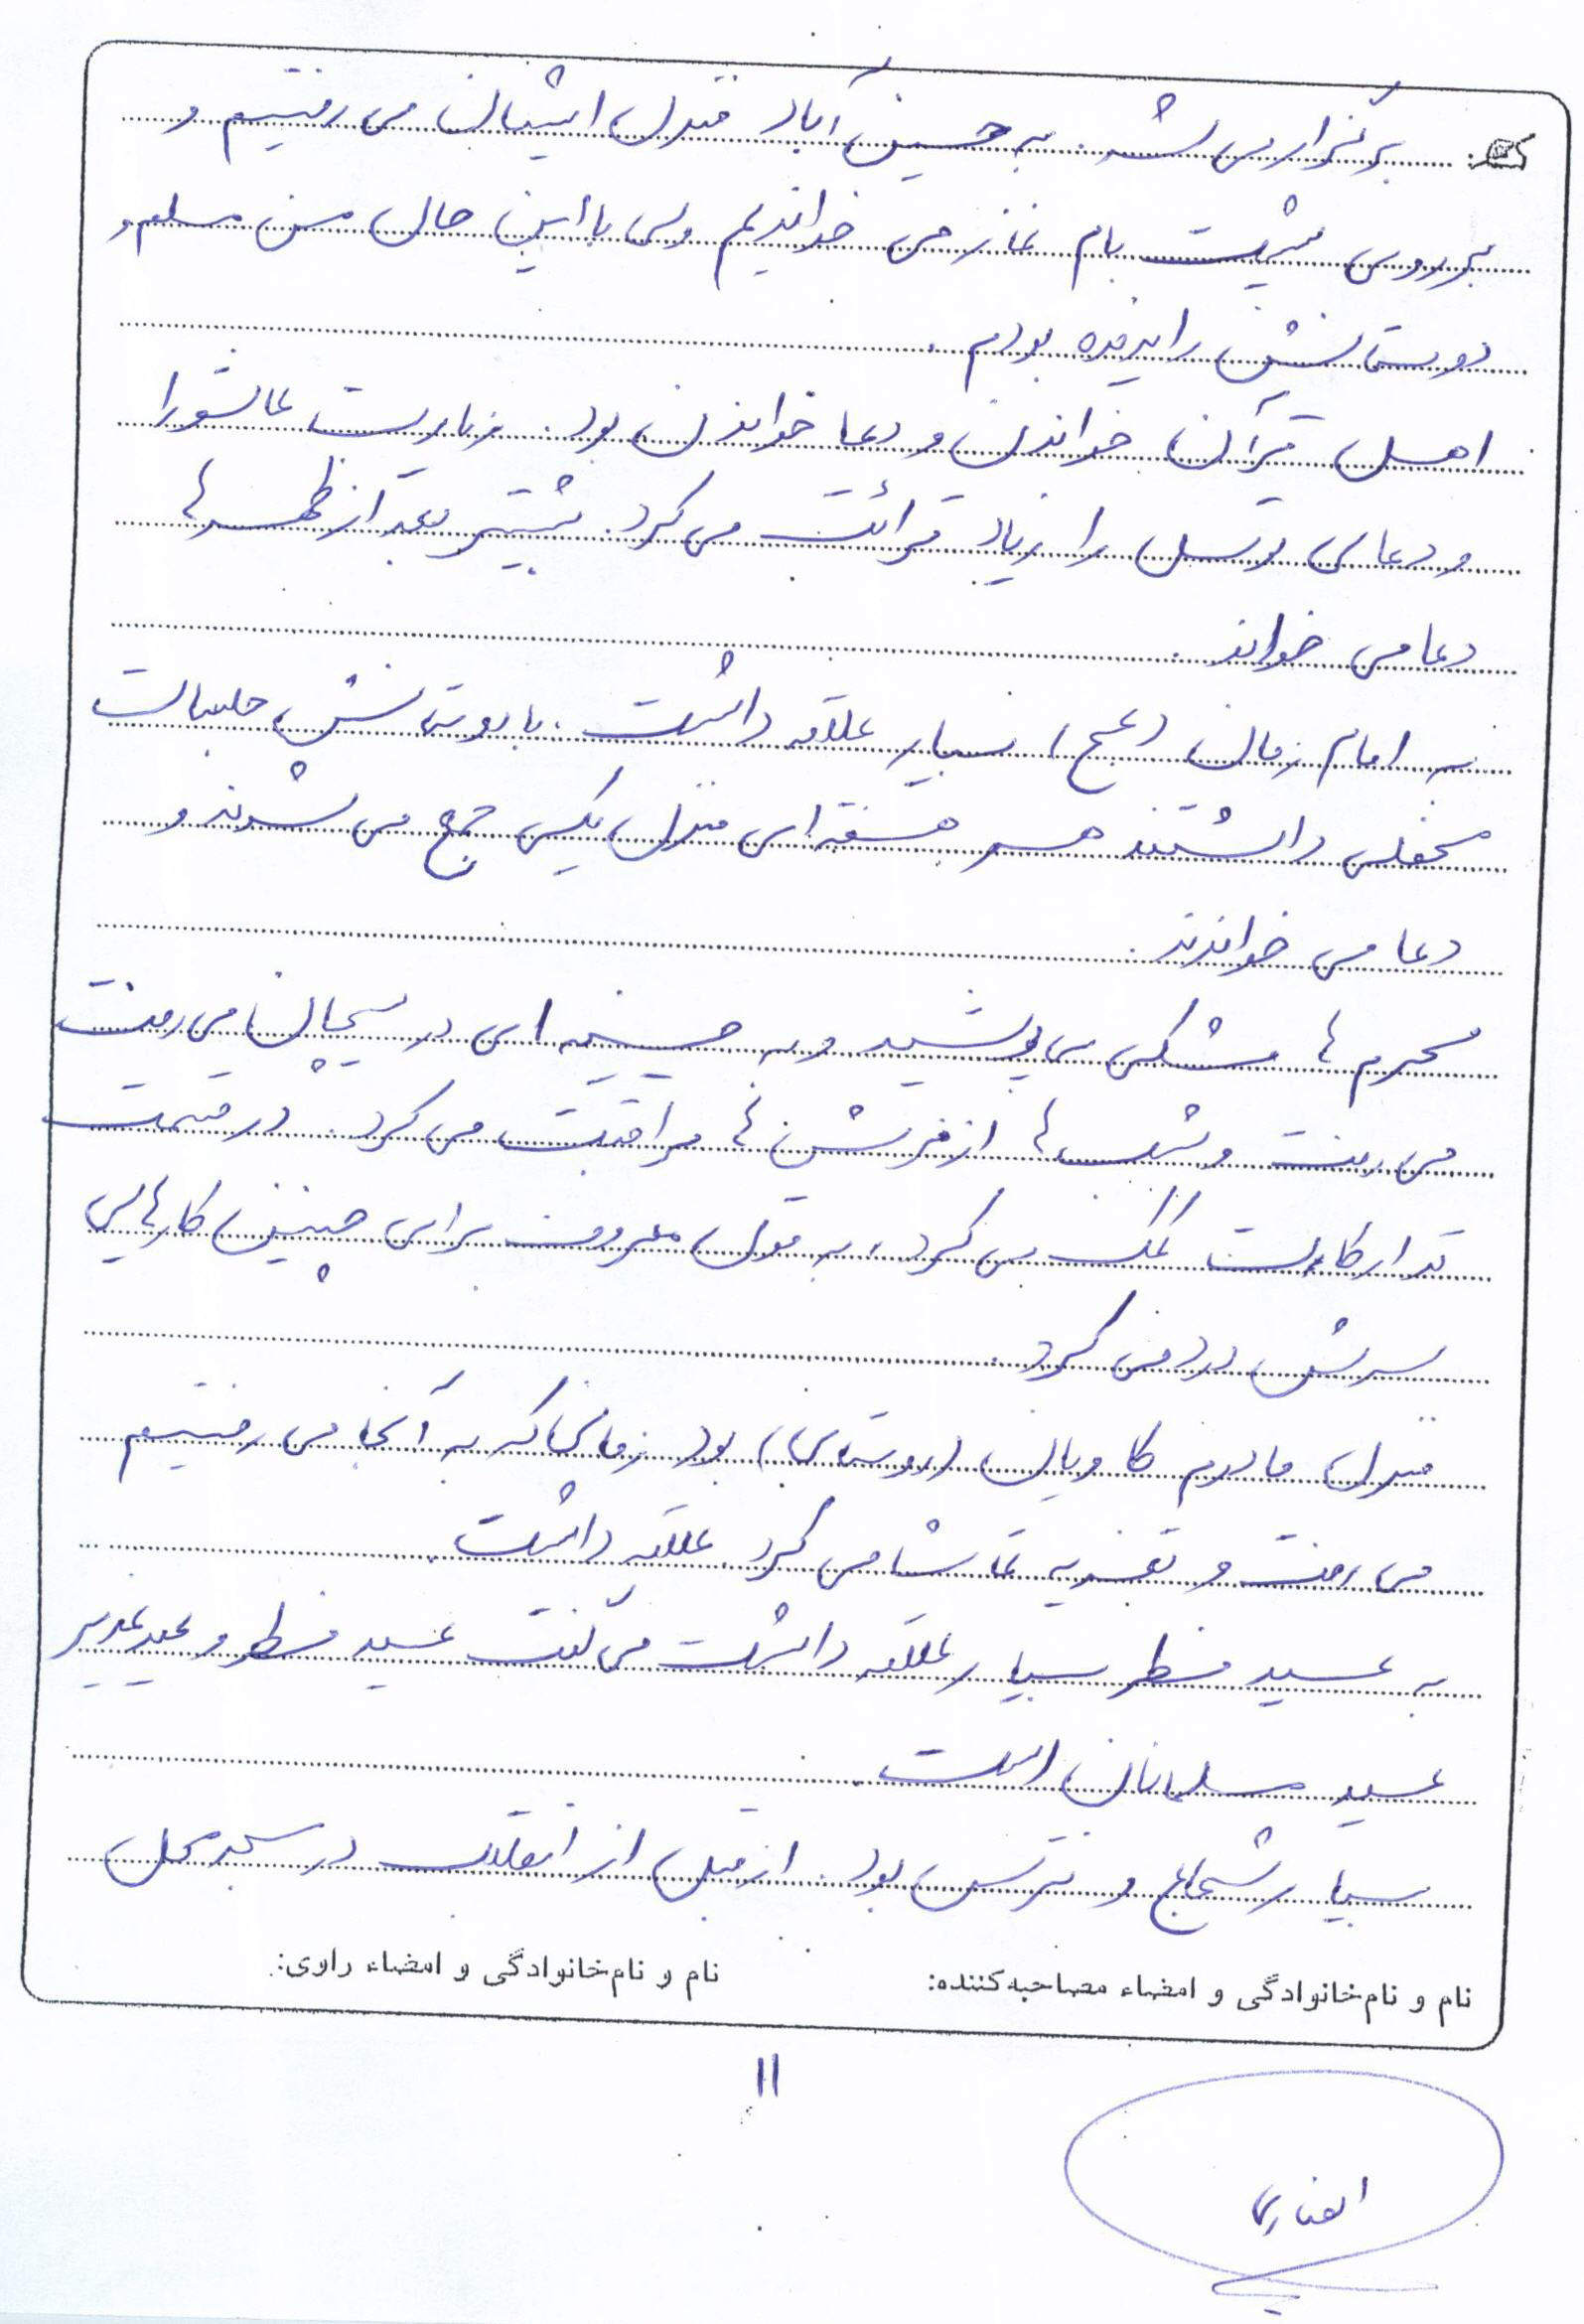 برگزار می شد. به حسین آباد منزل ایشان می رفتیم و
بر روی پشت بام نماز می خواندیم ولی با این حال من مسلم و
دوستانش را ندیده بودم.
اهل قرآن خواندن و دعا خواندن بود. زیارت عاشورا
و دعای توسل را زیاد قرائت می کرد. بیشتر بعد از ظهرها
دعا می خواند.
به امام زمان (عج) بسیار علاقه داشت. با دوستانش جلسات
محفلی داشتند هر هفته ای منزل یکی جمع می شوند و
دعا می خواندند.
محرم ها مشکی می پوشید و به حسینیه ای در سیچان می رفت
می رفت و شب ها از فرش ها مراقبت می کرد. در قسمت
تدارکات کمک می کرد، به قول معروف برای چنین کارهایی
سرش درد می کرد.
منزل مادرم کاویان (روستای) بود زمانی که به آنجا می رفتیم
می رفت و تعزیه تماشا می کرد علاقه داشت.
به عید فطر بسیار علاقه داشت می گفت عید فطر و عید غدیر
عید مسلمانان است.
بسیار شجاع و نترس بود. از قبل از انقلاب در مسجد محل
نام و نام خانوادگی و امضاء مصاحبه کننده: نام و نام خانوادگی و امضاء راوی:
۱۱